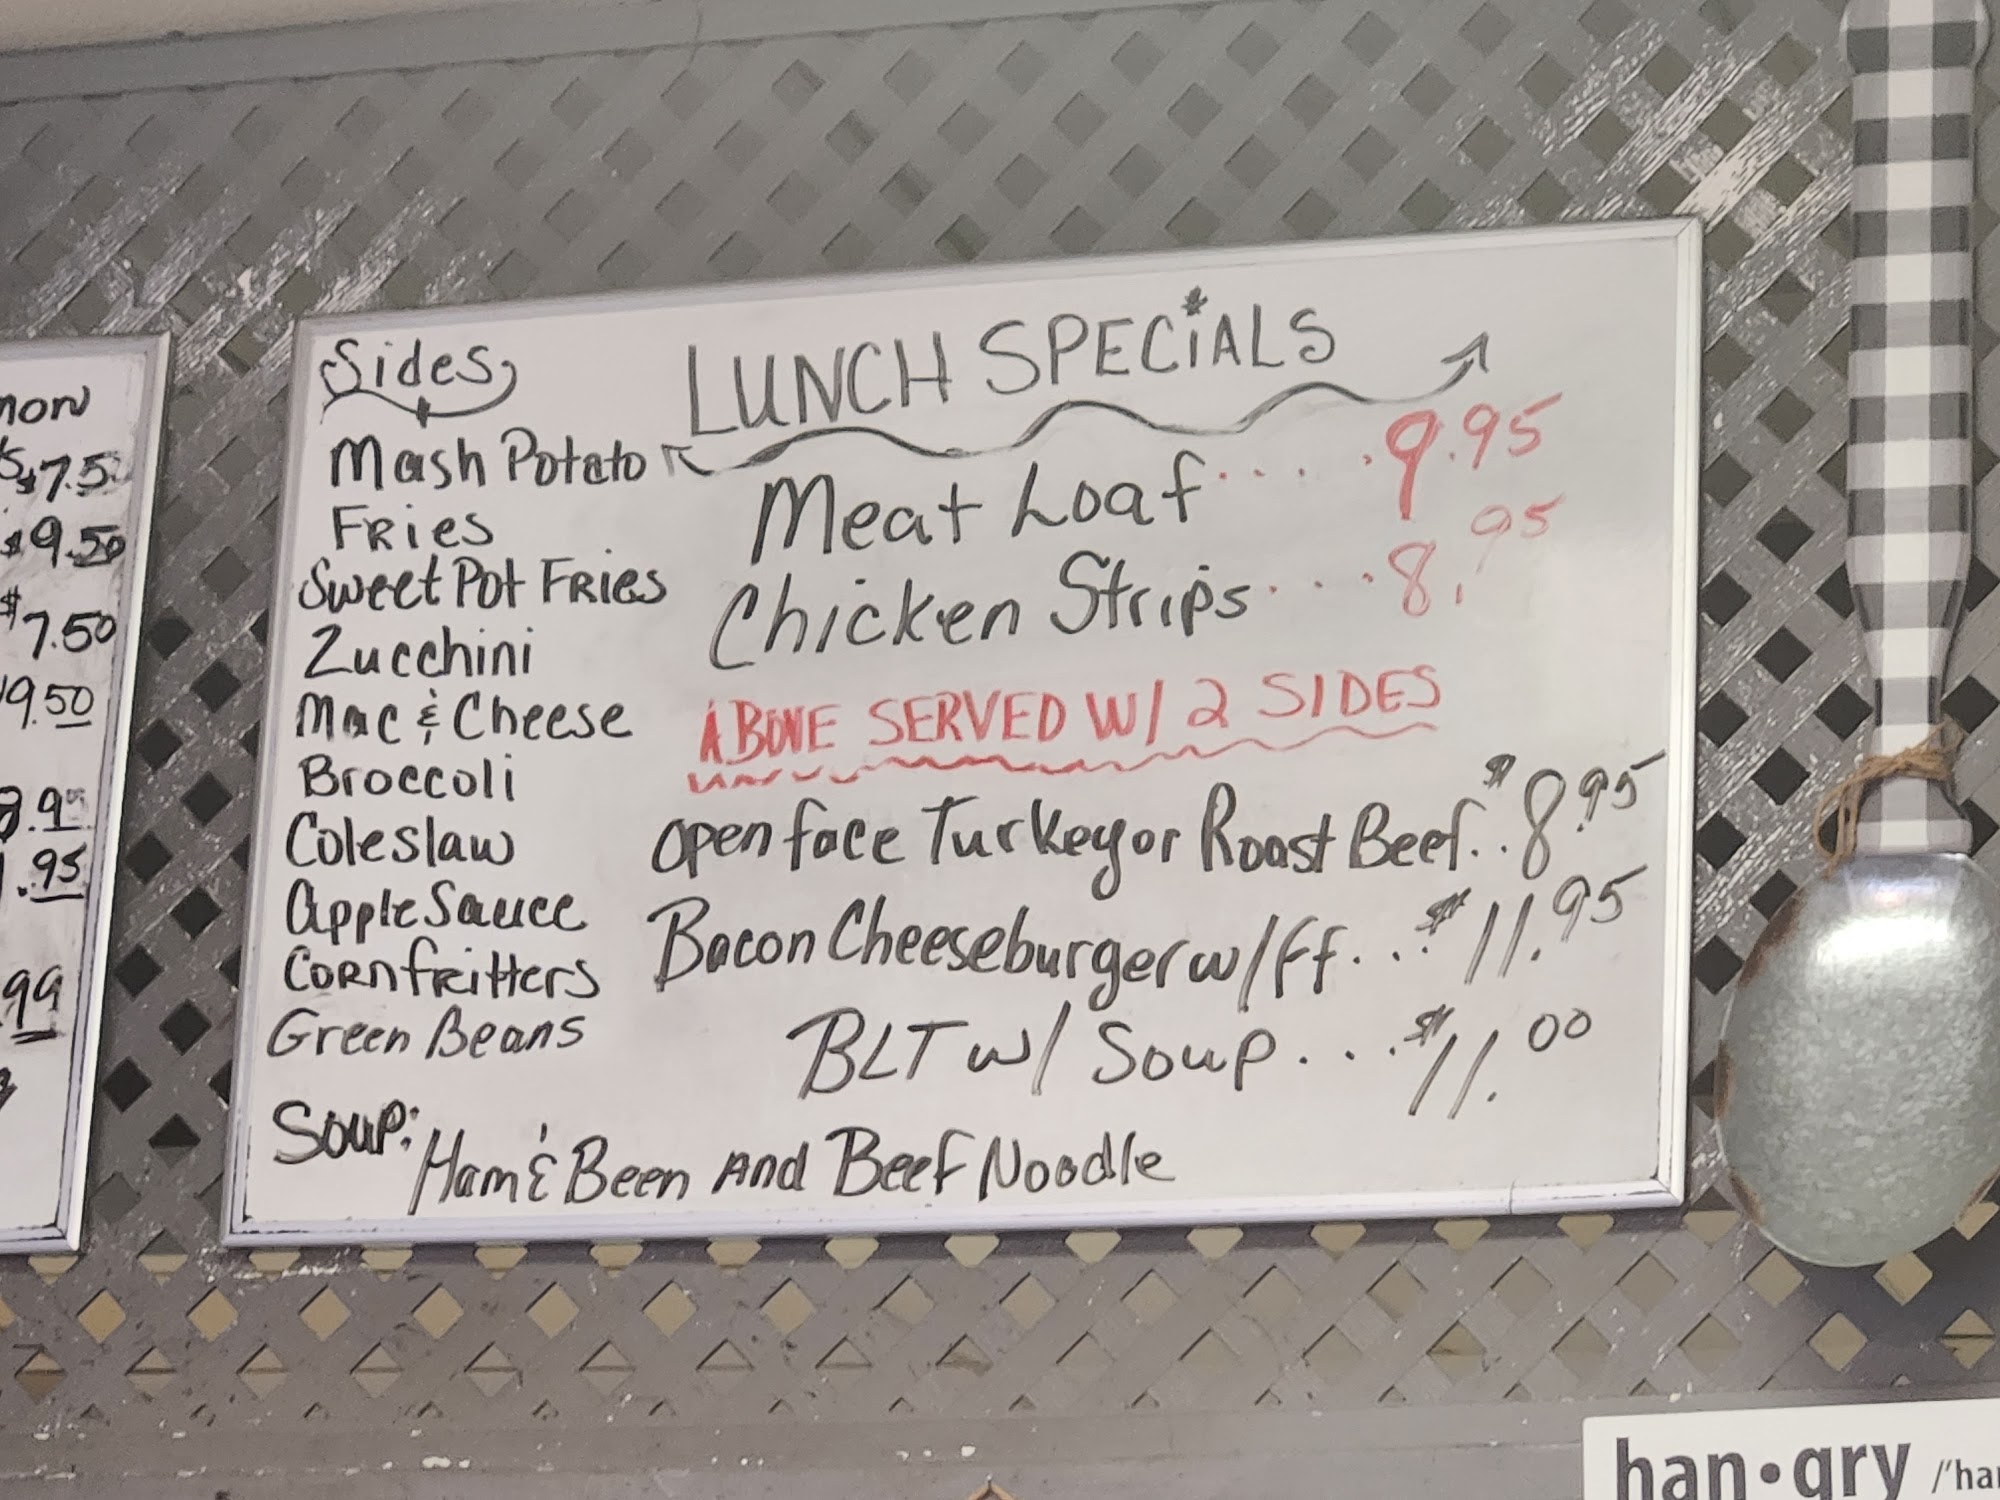 $7.5
$9.50
$7.50
9.50
.95
.99
Sides
Mash Potato
Fries
Sweet Pot Fries
Zucchini
Mac & Cheese
Broccoli
Coleslaw
Apple Sauce
Corn fritters
Green Beans
LUNCH SPECiALS
Meat Loaf.....9.95
Chicken Strips...8.95
ABOVE SERVED W/ 2 SIDES
Open face Turkey or Roast Beef..$8.95
Bacon Cheeseburger w/ff...$11.95
BLT w/ Soup...$11.00
Soup: Ham & Been And Beef Noodle
han•gry /'ha